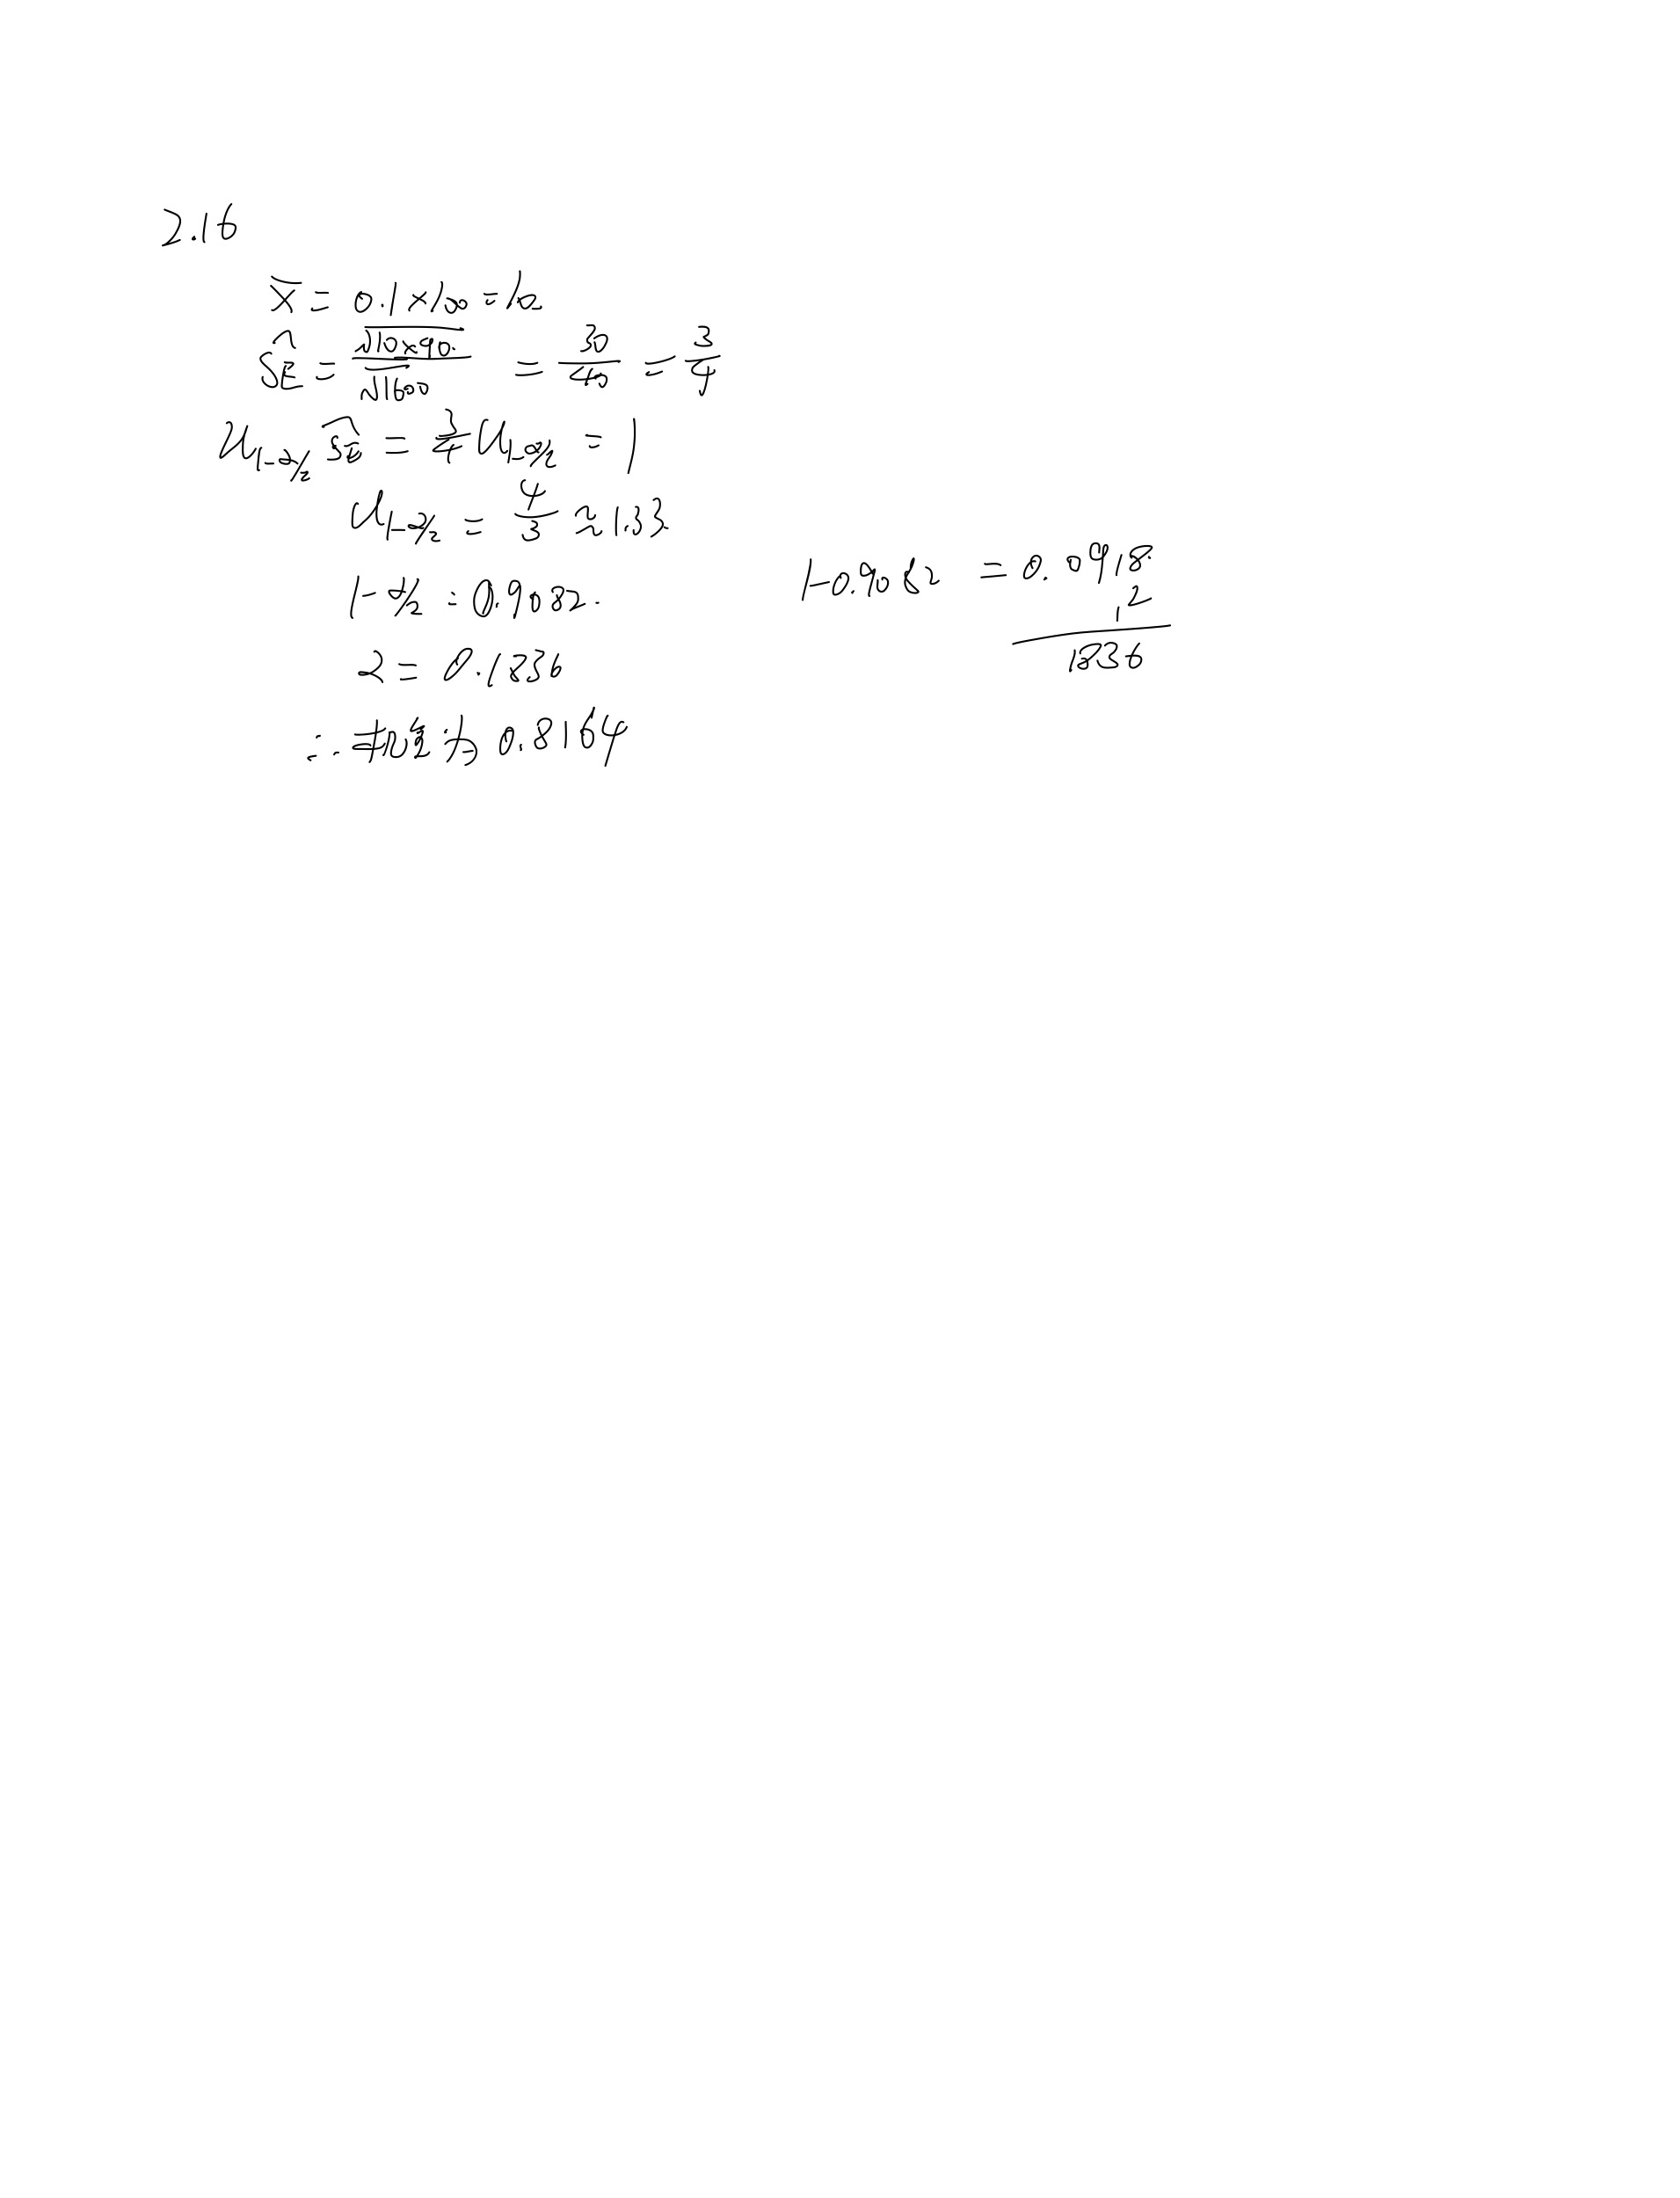 2.16
x̄ = 0.1×100 = 10
ŜE = √(10×90) / √1600 = 30/40 = 3/4
u₁₋α/₂ ŜE = 3/4 u₁₋α/₂ = 1
u₁₋α/₂ = 4/3 ≈ 1.33
1-α/2 = 0.9082.
α = 0.1836
∴ 概率为 0.8164
1-0.9082 = 0.0918.
2
1836